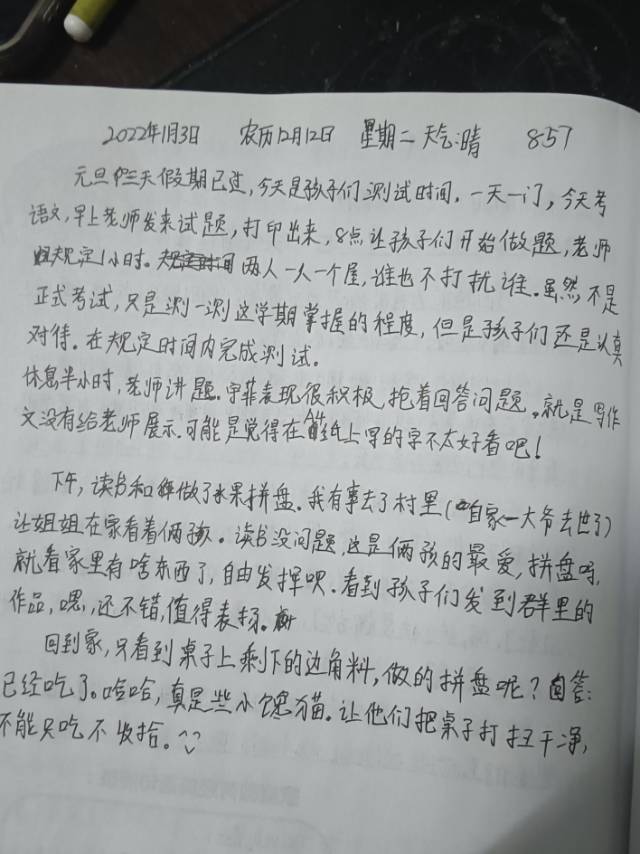 2022年1月3日 农历12月12日 星期二 天气:晴 857
元旦三天假期已过,今天是孩子们测试时间,一天一门,今天考
语文,早上老师发来试题,打印出来,8点让孩子们开始做题,老师
规定1小时.两人一人一个屋,谁也不打扰谁.虽然不是
正式考试,只是测一测这学期掌握的程度,但是孩子们还是认真
对待.在规定时间内完成测试.
休息半小时,老师讲题.宇菲表现很积极,抢着回答问题。就是写作
文没有给老师展示.可能是觉得在纸上写的字不太好看吧!
下午,读书和做了水果拼盘.我有事去了村里(自家一大爷去世了)
让姐姐在家看着俩孩.读书没问题,这是俩孩的最爱,拼盘吗,
就看家里有啥东西了,自由发挥呗.看到孩子们发到群里的
作品,嗯,还不错,值得表扬.
回到家,只看到桌子上剩下的边角料,做的拼盘呢?回答:
已经吃了.哈哈,真是些小馋猫.让他们把桌子打扫干净,
不能只吃不收拾.